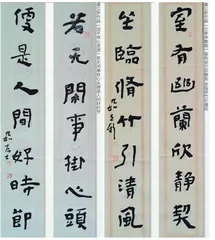 室有幽蘭欣静契
坐臨脩竹引清風
若无閑事掛心頭
便是人間好時節